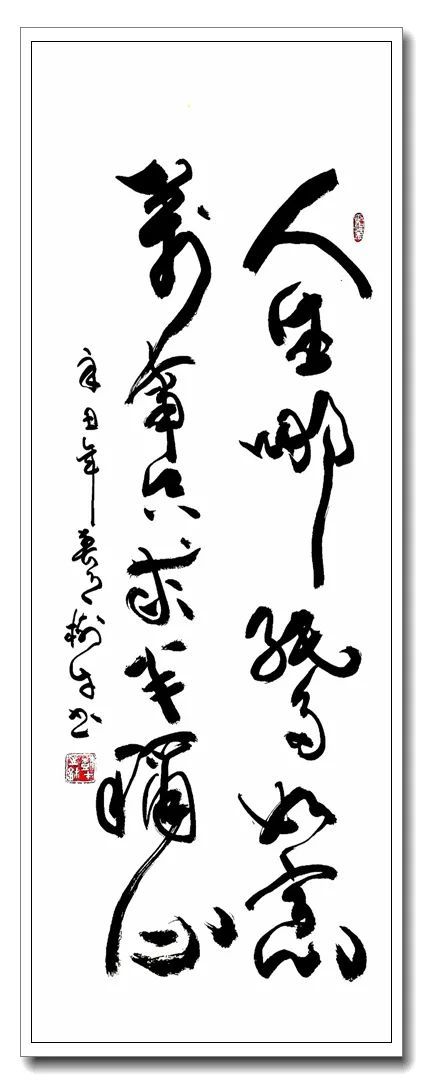 人生哪能多如意
萬事只求半稱心
辛丑年
书